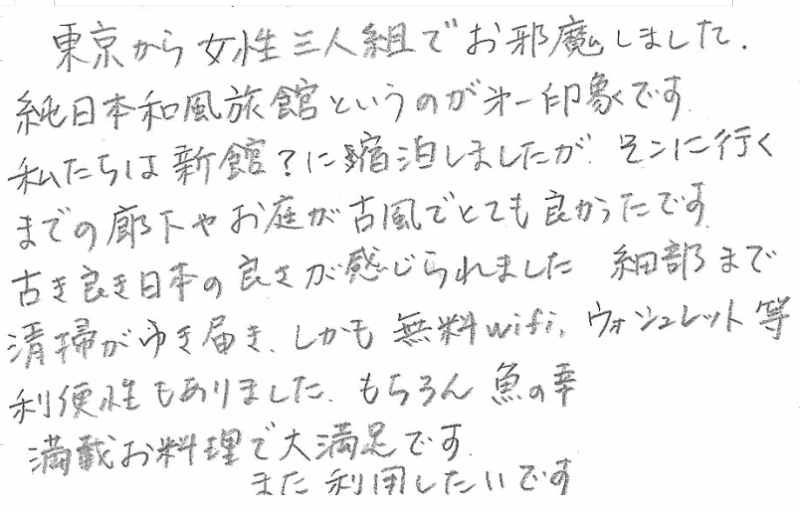 東京から女性三人組でお邪魔しました.
純日本和風旅館というのが第一印象です.
私たちは新館?に宿泊しましたが、そこに行く
までの廊下やお庭が古風でとても良かったです
古き良き日本の良さが感じられました 細部まで
清掃がゆき届き、しかも無料wifi、ウォシュレット等
利便性もありました、もちろん魚の幸
満載お料理で大満足です.
また利用したいです